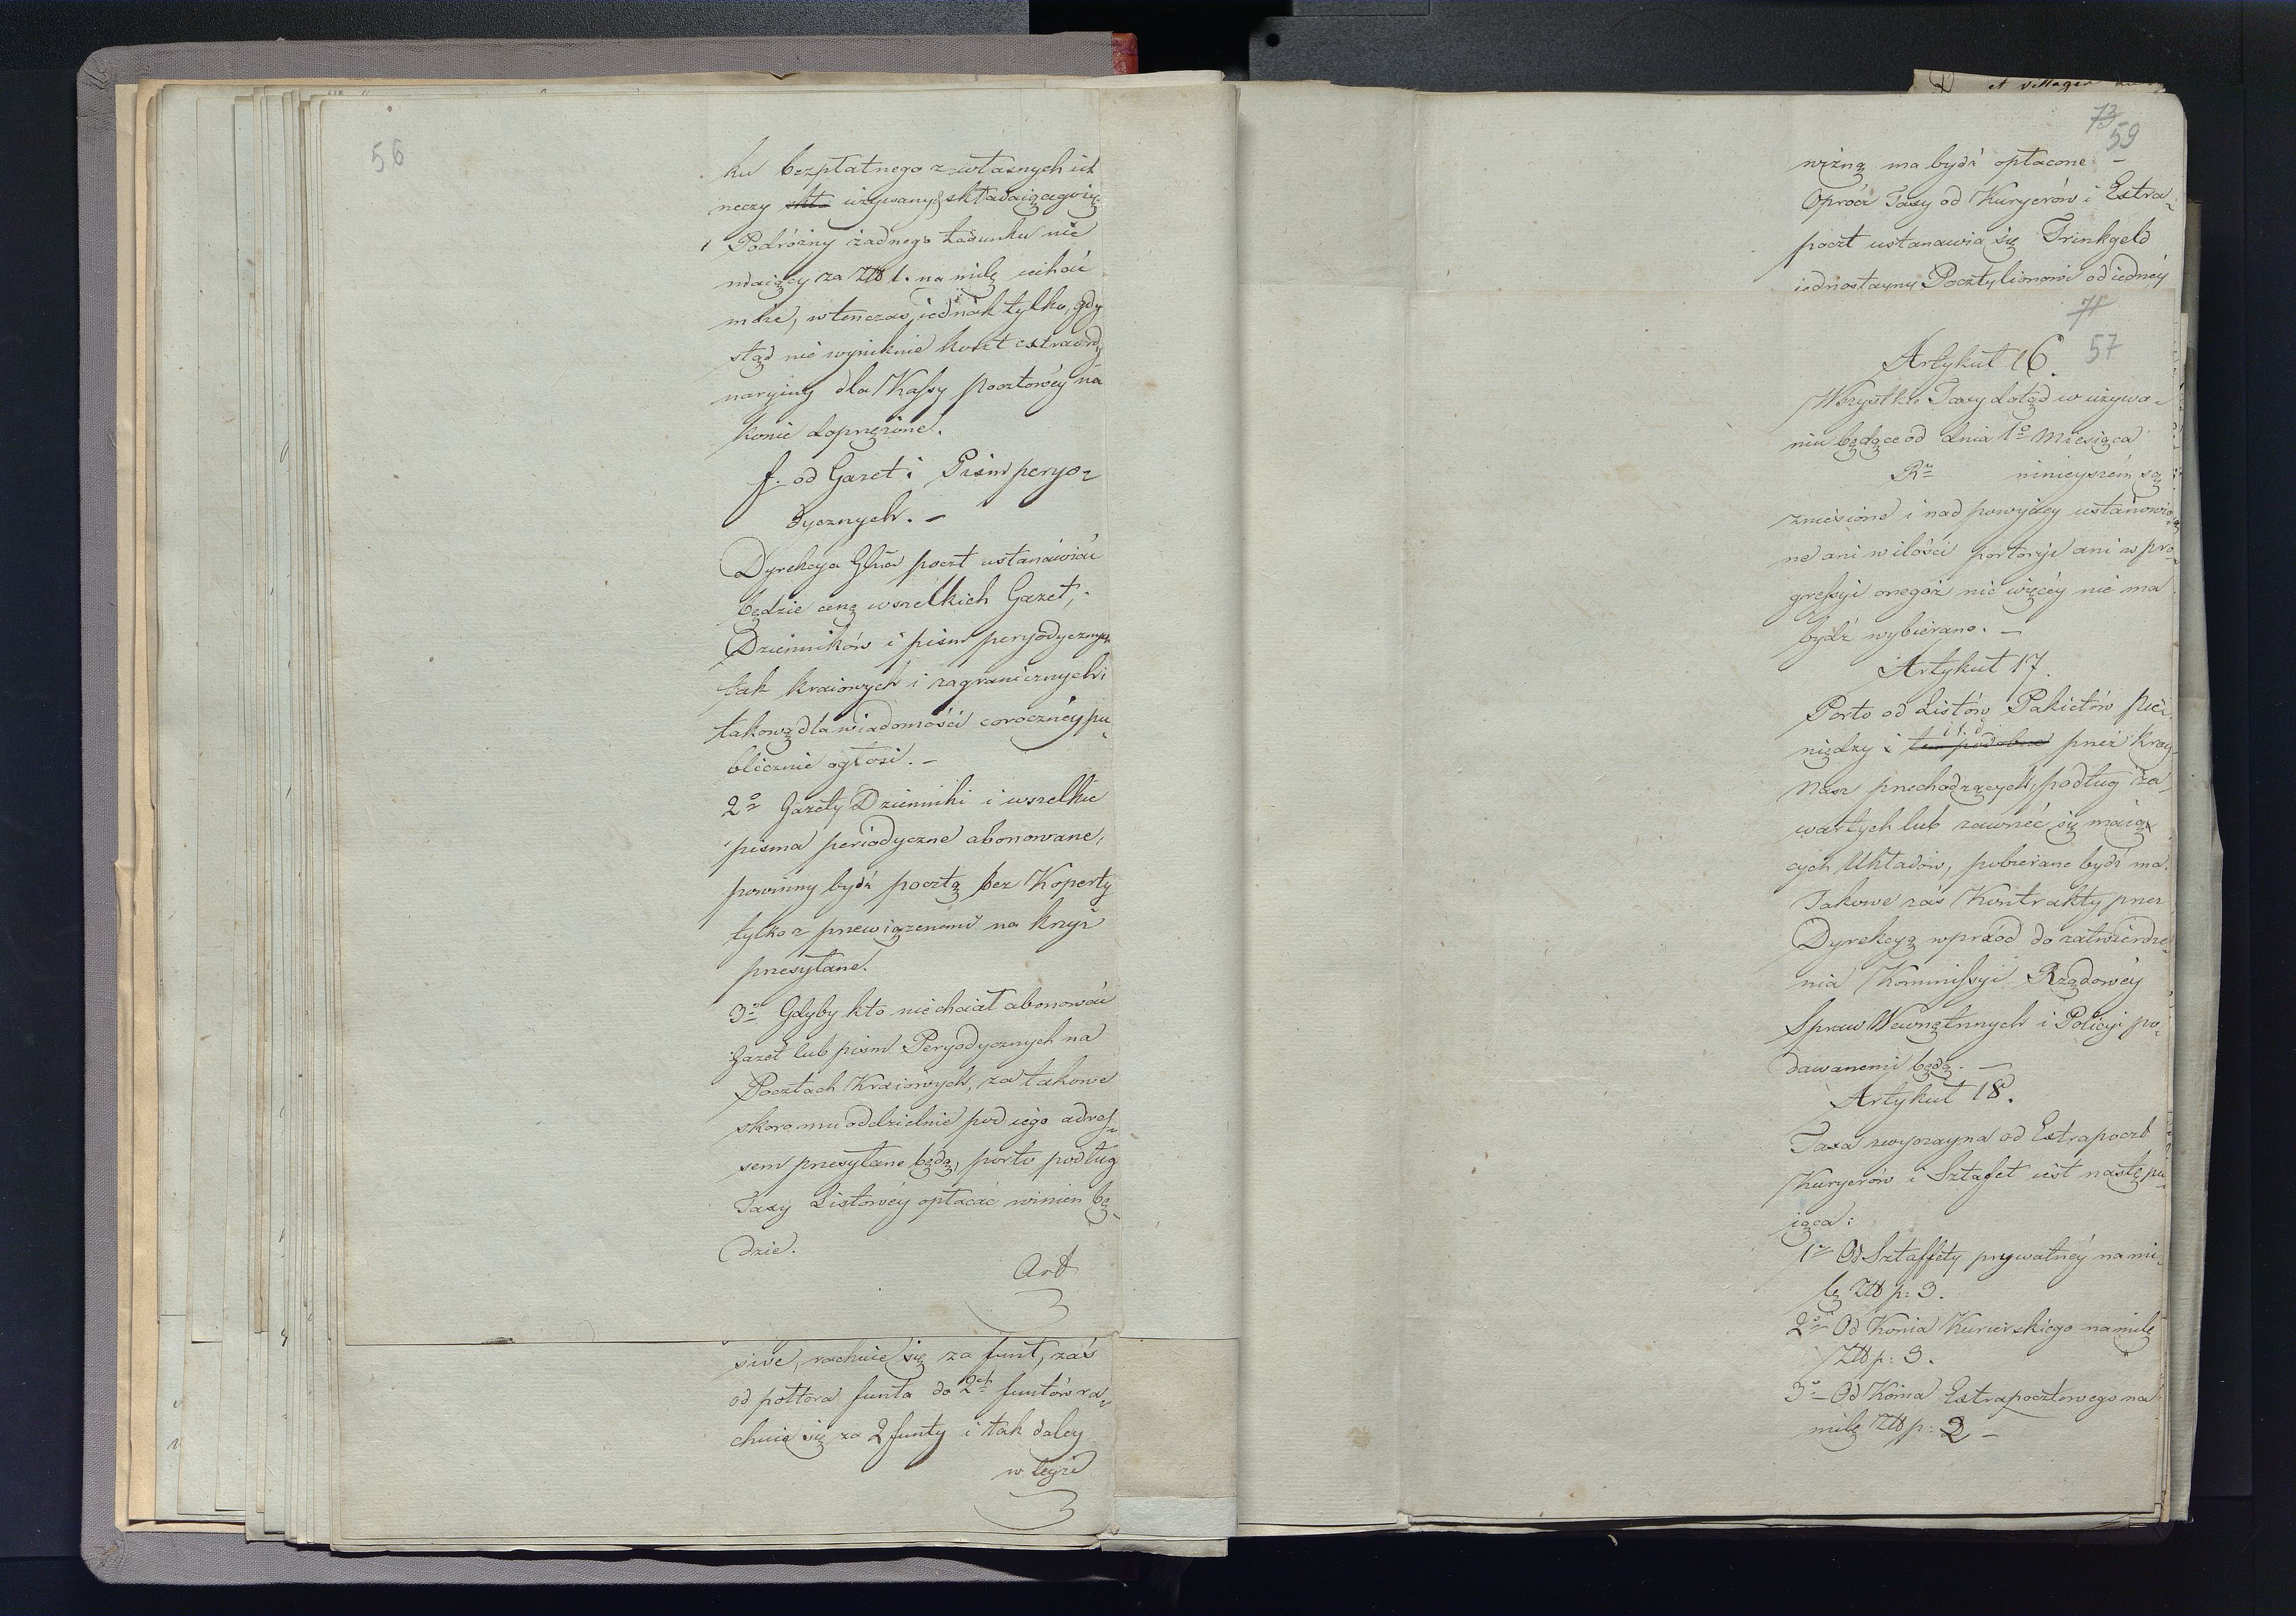 56
ku bezpłatnego z własnych ich
rzeczy skła używanych składaiącego się,
1 Podróżny żadnego ładunku nie
maiący za Złt 1. na milę iechać
może, w tenczas iednak tylko, gdy
ztąd nie wyniknie koszt extraordy
naryiny dla Kassy Pocztowéy na
konie doprzężone.
f. od Gazet i Pism peryo-
dycznych. -
Dyrekcya Głña poczt ustanawiać
będzie cenę wszelkich Gazet,
Dzienników i pism peryodycznych
tak kraiowych i zagranicznych i
takową dla wiadomości corocznéy pu-
blicznie ogłosi. -
2o Gazety Dzienniki i wszelkie
pisma periodyczne abonowane,
powinny bydź pocztą bez Koperty
tylko z przewiązenem na krzyż
przesyłane.
3o Gdyby kto nie chciał abonować
Gazet lub pism Peryodycznych na
Pocztach Kraiowych, za takowe
skoro mu oddzielnie pod iego adres-
sem przesyłane będą, porto podług
Taxy Listowéy opłacać winien bę-
dzie.
Art
sive, rachuie się za funt, zaś
od półtora funta do 2ch funtów ra-
chuie się za 2 funty i tak daley
w. tegże
et villages
73
59
wizną ma bydź opłacone -
Oprócz Taxy od Kuryerów i Extra-
poczt ustanawia się Trinkgeld
iednostayny Pocztylionowi od iednéy
71
57
Artykuł 16.
Wszystkie Taxy dotąd w używa-
niu będące od dnia 1o Miesiąca
Rr ninieyszém są
zniesione i nad powyżey ustanowio-
ne ani w ilości portoryi ani w pro-
gressyi onegoż nic więcéy nie ma
bydź wybierano. -
Artykuł 17.
Porto od Listów Pakietów Pie-
niędzy i tem podobne i t. d. przez kray
nasz przechodzących, podług za-
wartych lub zawrzeć się maią-
cych Układów, pobierane bydź ma.
Takowe zaś Kontrakty przez
Dyrekcyą wprzód do zatwierdze-
nia Kommissyi Rządowéy
Spraw Wewnętrznych i Policyi po-
dawanemi będą. -
Artykuł 18.
Taxa zwyczayna od Extrapoczt
Kuryerów i Sztafet iest następu-
iąca:
1o Od Sztaffety prywatnéy na mi-
lę Złt p: 3.
2o Od Konia Kurierskiego na milę
Złt p: 3.
3o Od Konia Extrapocztowego na
milę Złt p: 2 -